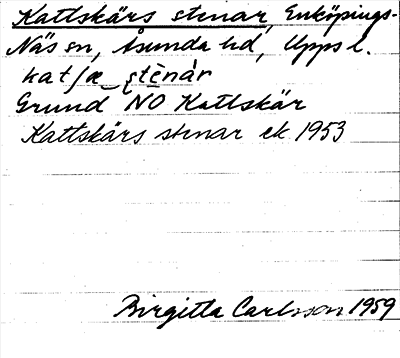 Kattskärs stenar, Enköpings-
Näs sn, Åsunda hd, Uppsl.
kat/æ_stènàr
Grund NO Kattskär
Kattskärs stenar ek 1953
Birgitta Carlsson 1959